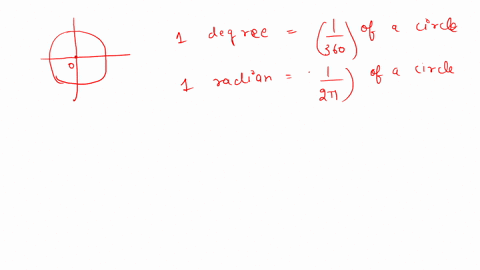 1 degree = (1/360) of a circle
1 radian = 1/2π) of a circle
0